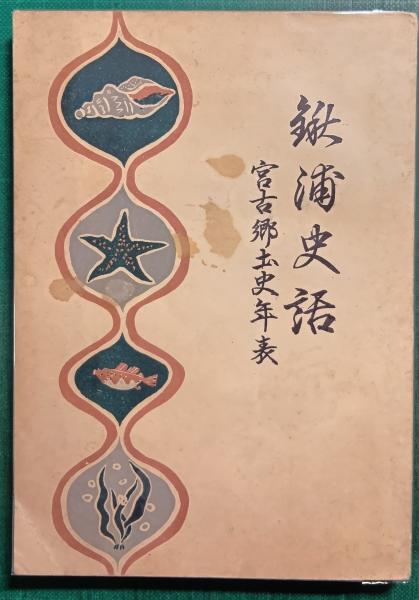 鍬浦史話
宮古郷土史年表